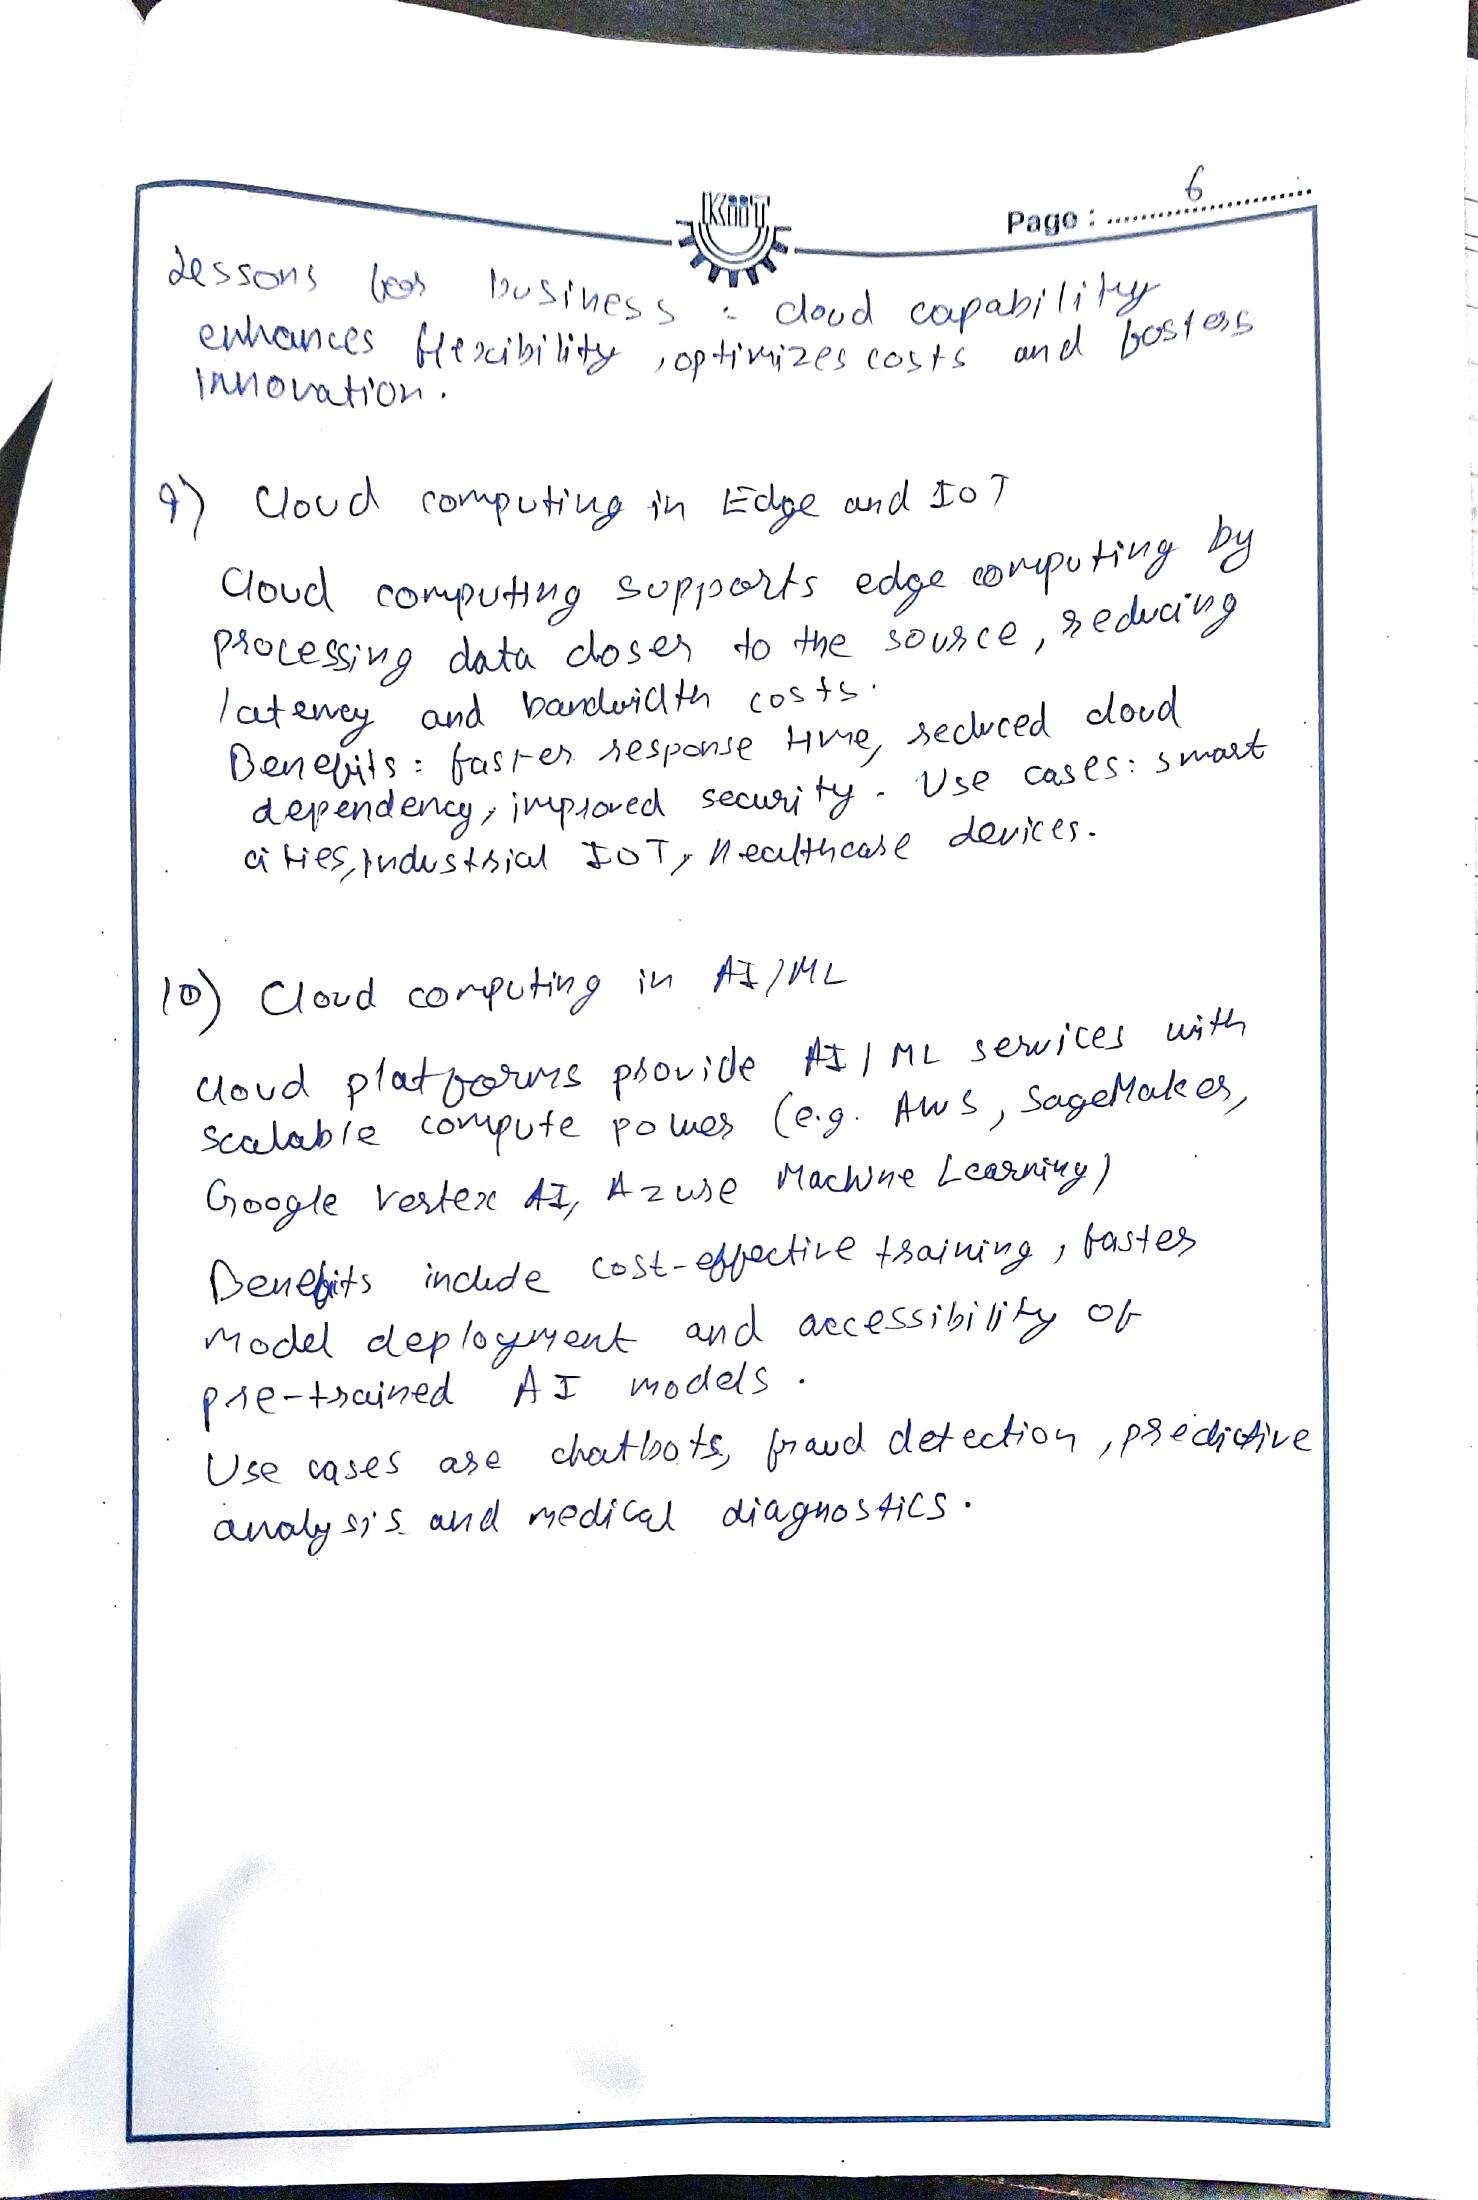 KiiT
Page : 6
Lessons for business : cloud capability
enhances flexibility, optimizes costs and fosters
innovation.
9) Cloud computing in Edge and IoT
Cloud computing supports edge computing by
processing data closer to the source, reducing
latency and bandwidth costs.
Benefits : faster response time, reduced cloud
dependency, improved security. Use cases : smart
cities, industrial IoT, healthcare devices.
10) Cloud computing in AI/ML
Cloud platforms provide AI/ML services with
scalable compute power (e.g. AWS, SageMaker,
Google Vertex AI, Azure Machine Learning)
Benefits include cost-effective training, faster
model deployment and accessibility of
pre-trained AI models.
Use cases are chatbots, fraud detection, predictive
analysis and medical diagnostics.